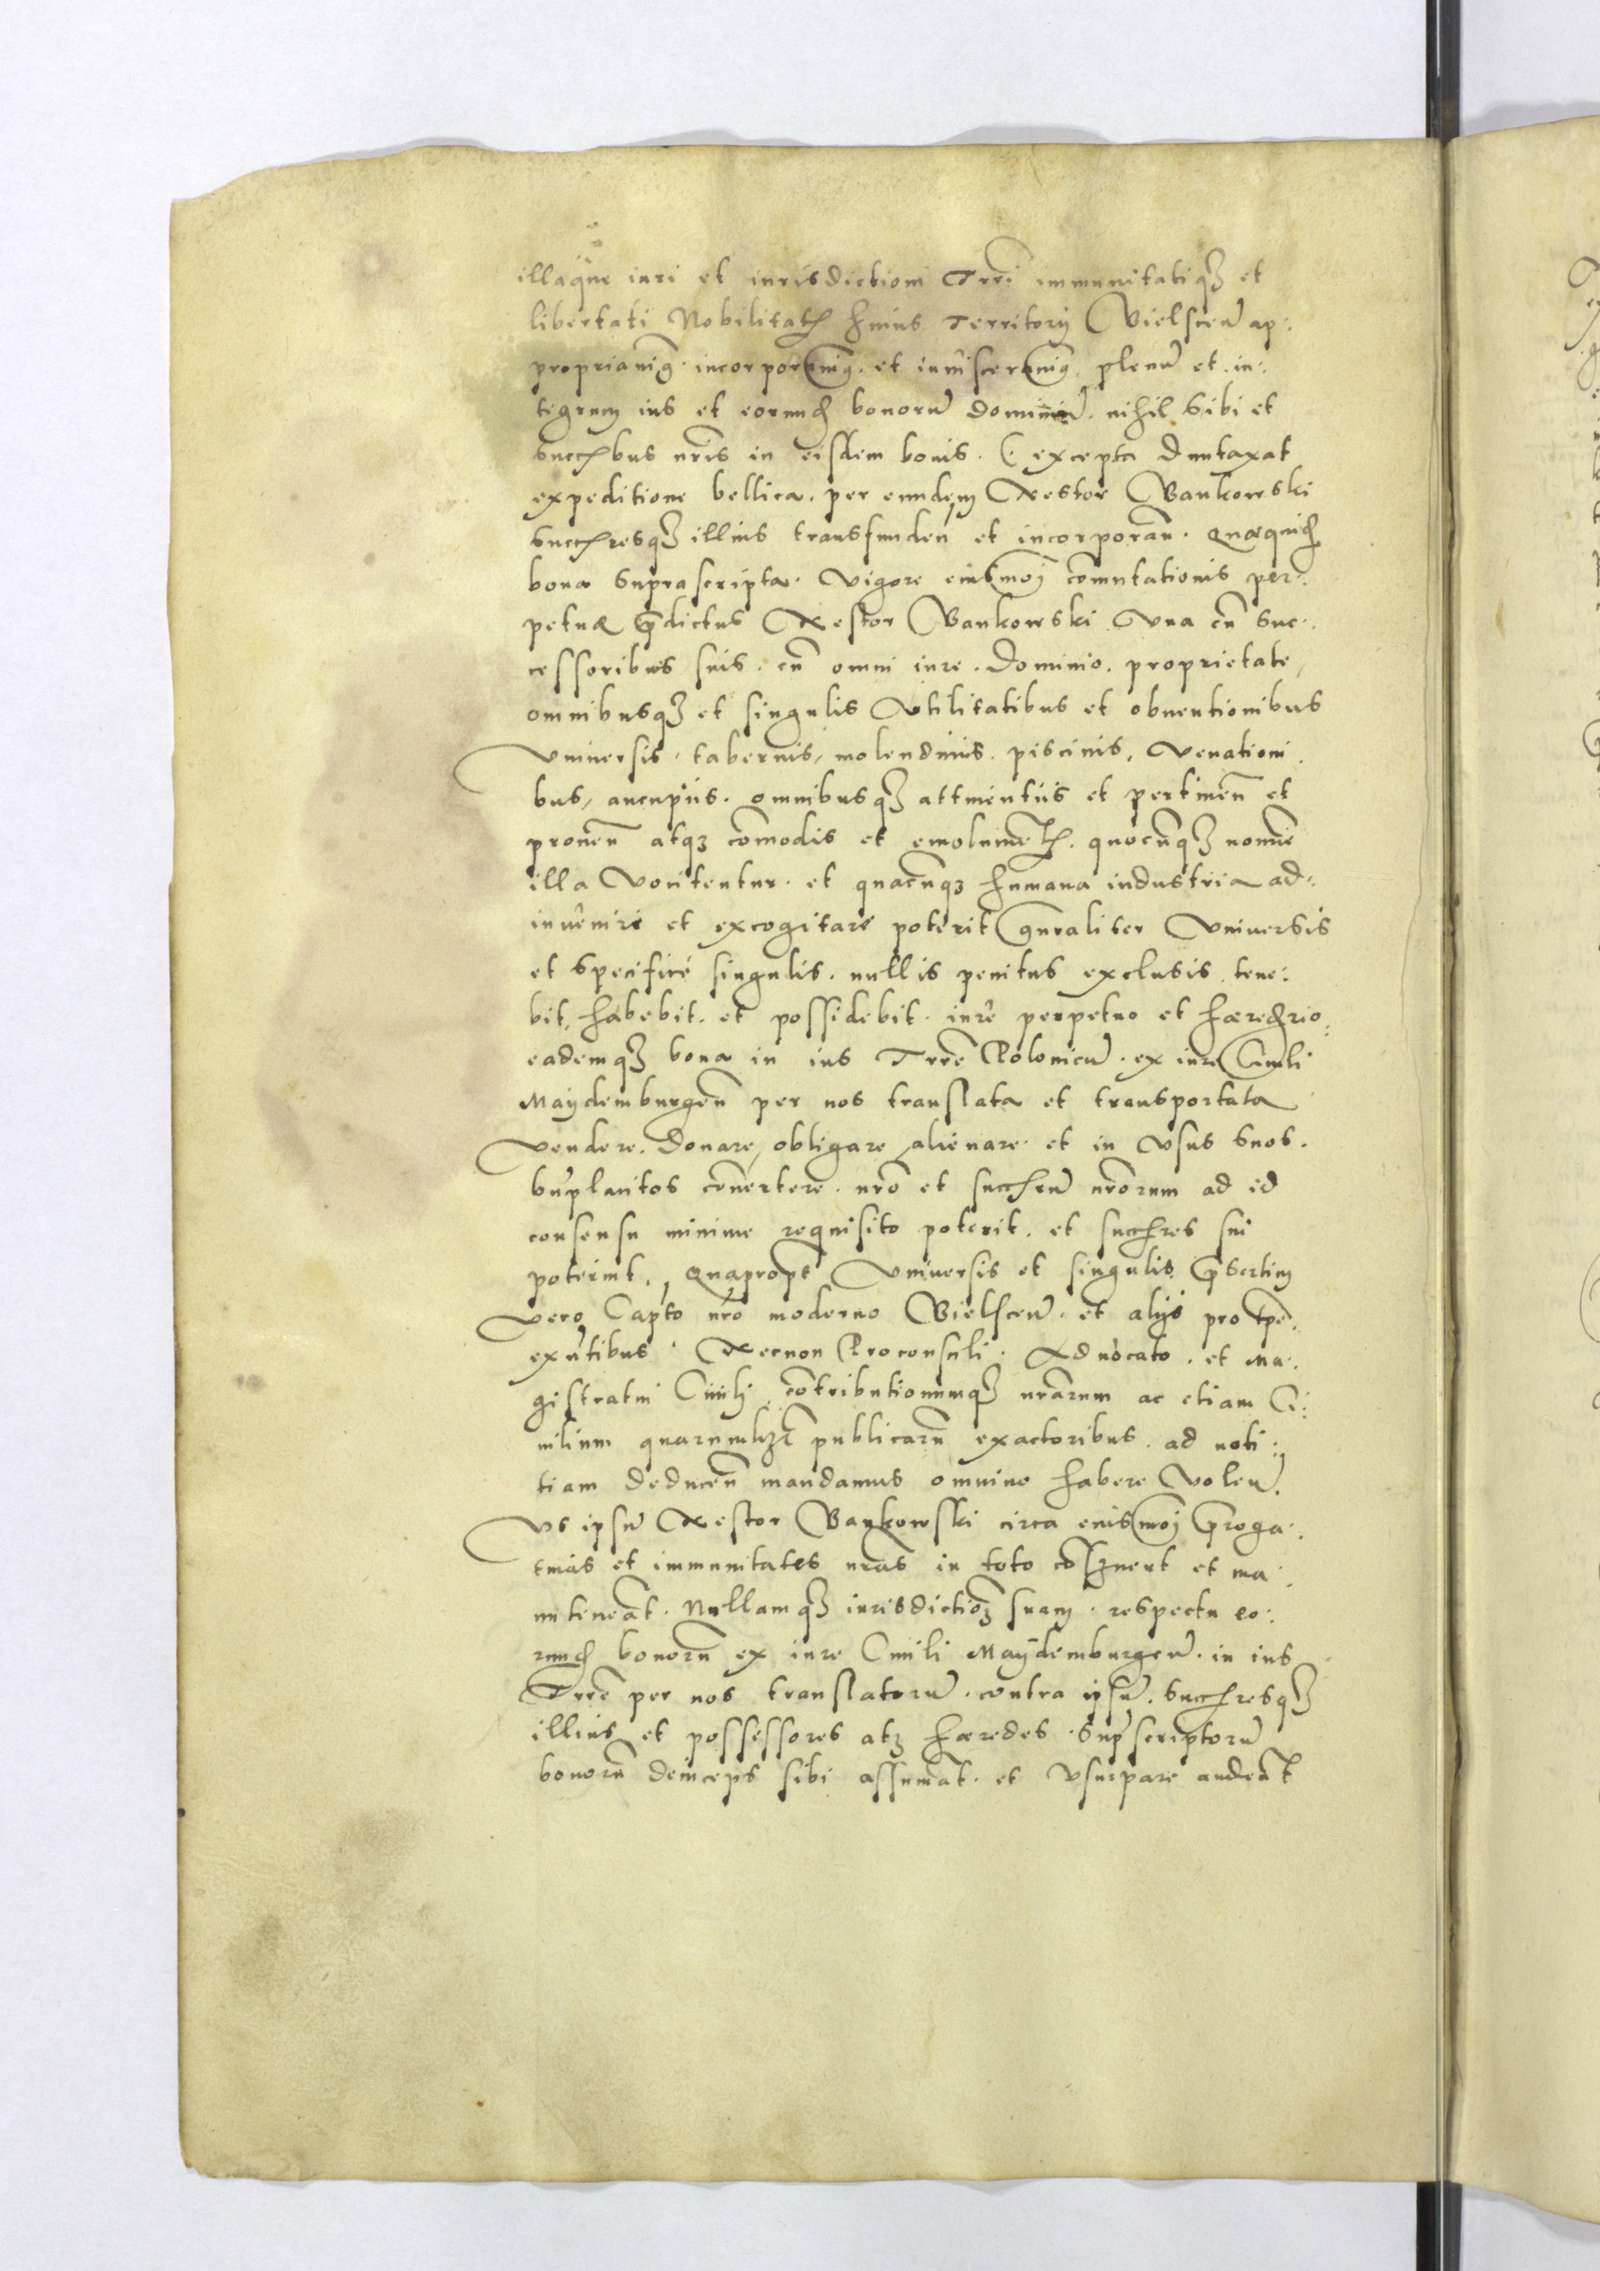 illaque iuri et iurisdictioni Trri immunitatiqз et
libertati Nobilitatis huius Territorij Bielsceñ ap:
propriamꝰ incorporamꝰ et inuisceramꝰ. plenũ et in:
tegrum ius et eorund bonorũ dominiũ. nihil sibi et
succribus nris in eisdem bonis. (excepta duntaxat
expeditione bellica. per eundem Nestor Bankowski
succresqз illius transfundeñ et incorporañ. Quæquid
bona suprascripta. vigore eiusmoj com̃utationis per:
petuæ p̃dictus Nestor Bankowski Vna cũ suc:
cessoribus suis. cũ omni iure. Dominio. proprietate,
omnibusqз et singulis vtilitatibus et obuentionibus
vniuersis. tabernis, molendinis. piscinis, Venationi
bus, aucupiis. omnibusqз attinentiis et pertineñ et
proueñ atqз com̃odis et emolumẽtis. quocũqз nomine
illa Vocitentur. et quacũqз humana industria ad:
inuenire et excogitare poterit gñraliter Vniuersis
et specificé singulis. nullis penitus exclusis. tene:
bit, habebit. et possidebit. iure perpetuo et hæredrio.
eademqз bona in ius Trre Polonicũ. ex iure Ciuili
Maydemburgeñ per nos translata et transportata
vendere. donare, obligare, alienare. et in vsus suos.
bñplacitos cõuertere. nro et succrum nrorum ad id
consensu minime requisito poterit. et succres sui
poterint. Quapropt Vniuersis et singulis p̃sertim
vero Capto nro moderno Bielsceñ. et alijs pro tpe.
exñtibus. Necnon Proconsuli. Aduocato. et Ma:
gistratui Ciuili, cõtributionumqз nrarum ac etiam Ci:
uilium quarumlзt publicarũ exactoribus. ad noti:
tiam deduceñ mandamus omnino habere voleñ.
vs ipsũ Nestor Bankowski circa eiusmoj p̃roga:
tiuas et immunitates nras in toto cõseruent et ma:
nuteneãt. Nullamqз iurisdictioẽ suam. respectu eo:
rund bonorũ ex iure Ciuili Maydemburgeñ. in ius
Trre per nos translatorũ. contra ipsũ. succresqз
illius et possessores atqз hæredes. supscriptorũ
bonorũ deinceps sibi assumãt. et Vsurpare audeãt